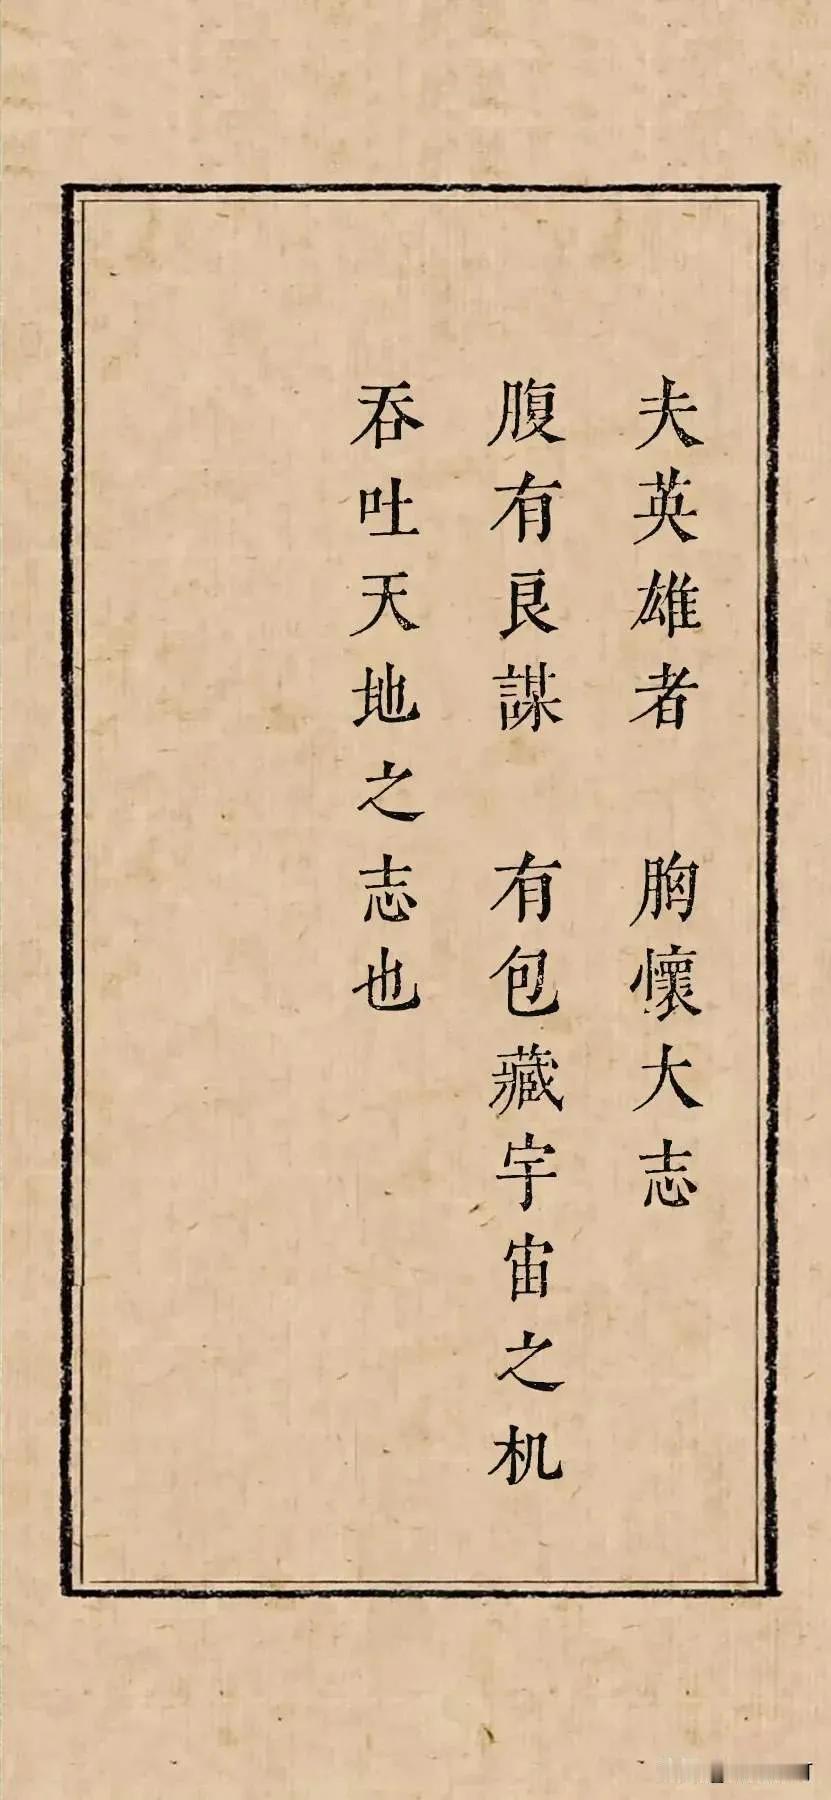 夫英雄者　胸懷大志
腹有良謀　有包藏宇宙之机
吞吐天地之志也